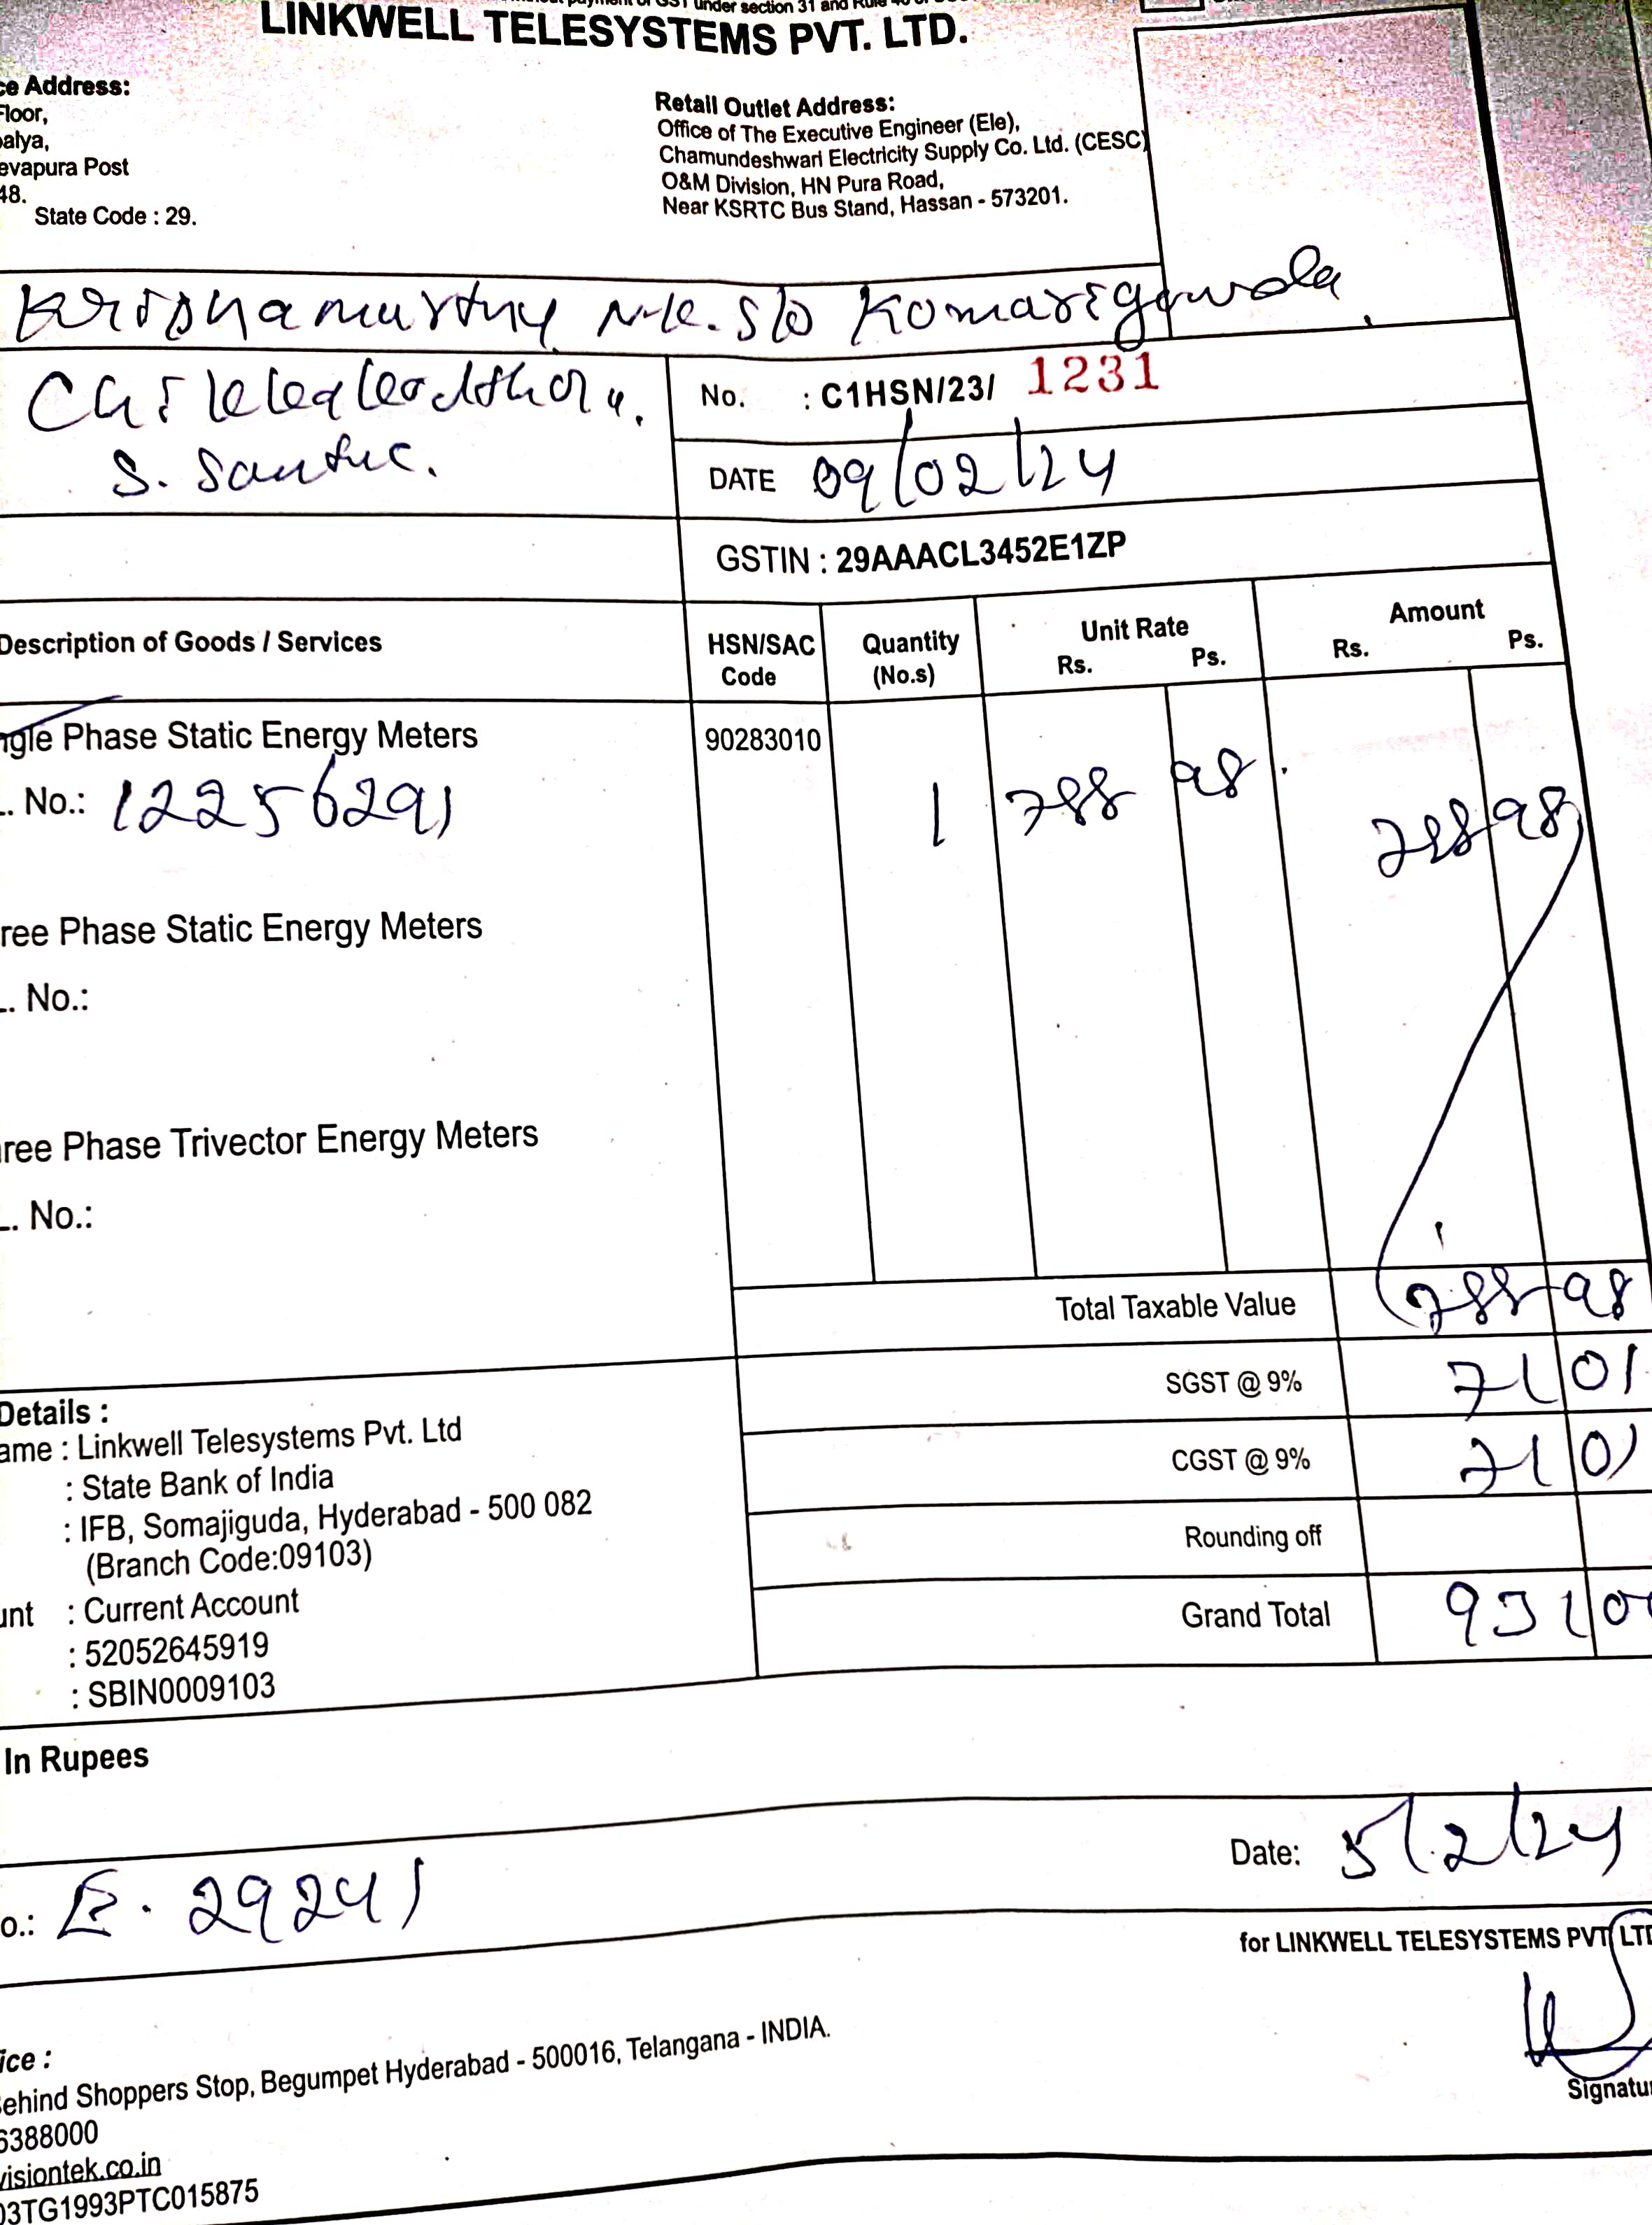 payment of GST under section 31 and Rule
LINKWELL TELESYSTEMS PVT. LTD.
ce Address:
Floor,
palya,
evapura Post
48.
State Code : 29.
Retail Outlet Address:
Office of The Executive Engineer (Ele),
Chamundeshwari Electricity Supply Co. Ltd. (CESC)
O&M Division, HN Pura Road,
Near KSRTC Bus Stand, Hassan - 573201.
Krishnamurthy N.K. S/o Komarigowda
No. : C1HSN/23/ 1231
S. Santhe.
DATE 09/02/24
GSTIN : 29AAACL3452E1ZP
Description of Goods / Services HSN/SAC Code Quantity (No.s) Unit Rate Rs. Ps. Amount Rs. Ps.
ngle Phase Static Energy Meters 90283010
. No.: 12256291 1 788 98 788 98
ree Phase Static Energy Meters
. No.:
ree Phase Trivector Energy Meters
. No.:
Total Taxable Value 788 98
SGST @ 9% 71 01
CGST @ 9% 71 01
Rounding off
Grand Total 931 00
Details :
ame : Linkwell Telesystems Pvt. Ltd
: State Bank of India
: IFB, Somajiguda, Hyderabad - 500 082
(Branch Code:09103)
unt : Current Account
: 52052645919
: SBIN0009103
In Rupees
o.: E. 29241 Date: 5/2/24
for LINKWELL TELESYSTEMS PVT LTD
Signatu
ice :
Behind Shoppers Stop, Begumpet Hyderabad - 500016, Telangana - INDIA.
6388000
visiontek.co.in
03TG1993PTC015875